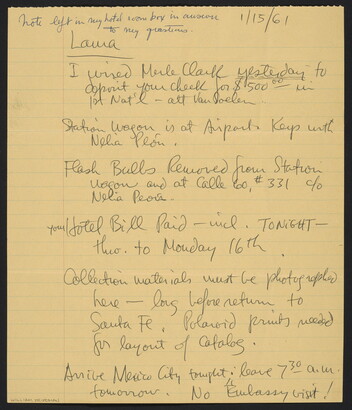 Note left in my hotel room box in answer
to my questions.
1/15/61
Laura
I wired Merle Clark yesterday to
deposit your check for $1500.00 in
1st Nat'l — att Van Soelen.
Station Wagon is at Airport. Keys with
Nelia Peón.
Flash Bulbs Removed from Station
wagon and at Calle 60, #331 c/o
Nelia Peón.
your Hotel Bill Paid — incl. TONIGHT —
thro. to Monday 16th.
Collection materials must be photographed
here — long before return to
Santa Fe. Polaroid prints needed
for layout of Catalog.
Arrive Mexico City tonight; leave 7:30 a.m.
tomorrow. No Embassy visit!